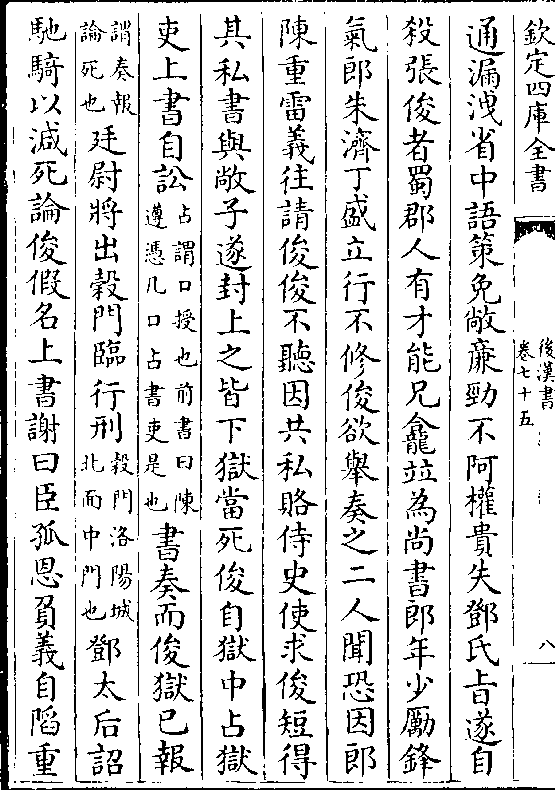 欽定四庫全書
後漢書
卷七十五
八
通漏洩省中語策免敞廉勁不阿權貴失鄧氏㫖遂自
殺張俊者蜀郡人有才能兄龕竝為尚書郎年少勵鋒
氣郎朱濟丁盛立行不修俊欲舉奏之二人聞恐因郎
陳重雷義往請俊俊不聽因共私賂侍史使求俊短得
其私書與敞子遂封上之皆下獄當死俊自獄中占獄
吏上書自訟占謂口授也前書曰陳
遵憑几口占書吏是也書奏而俊獄已報
謂奏報
論死也廷尉將出糓門臨行刑糓門洛陽城
北面中門也鄧太后詔
馳騎以減死論俊假名上書謝曰臣孤恩負義自陷重